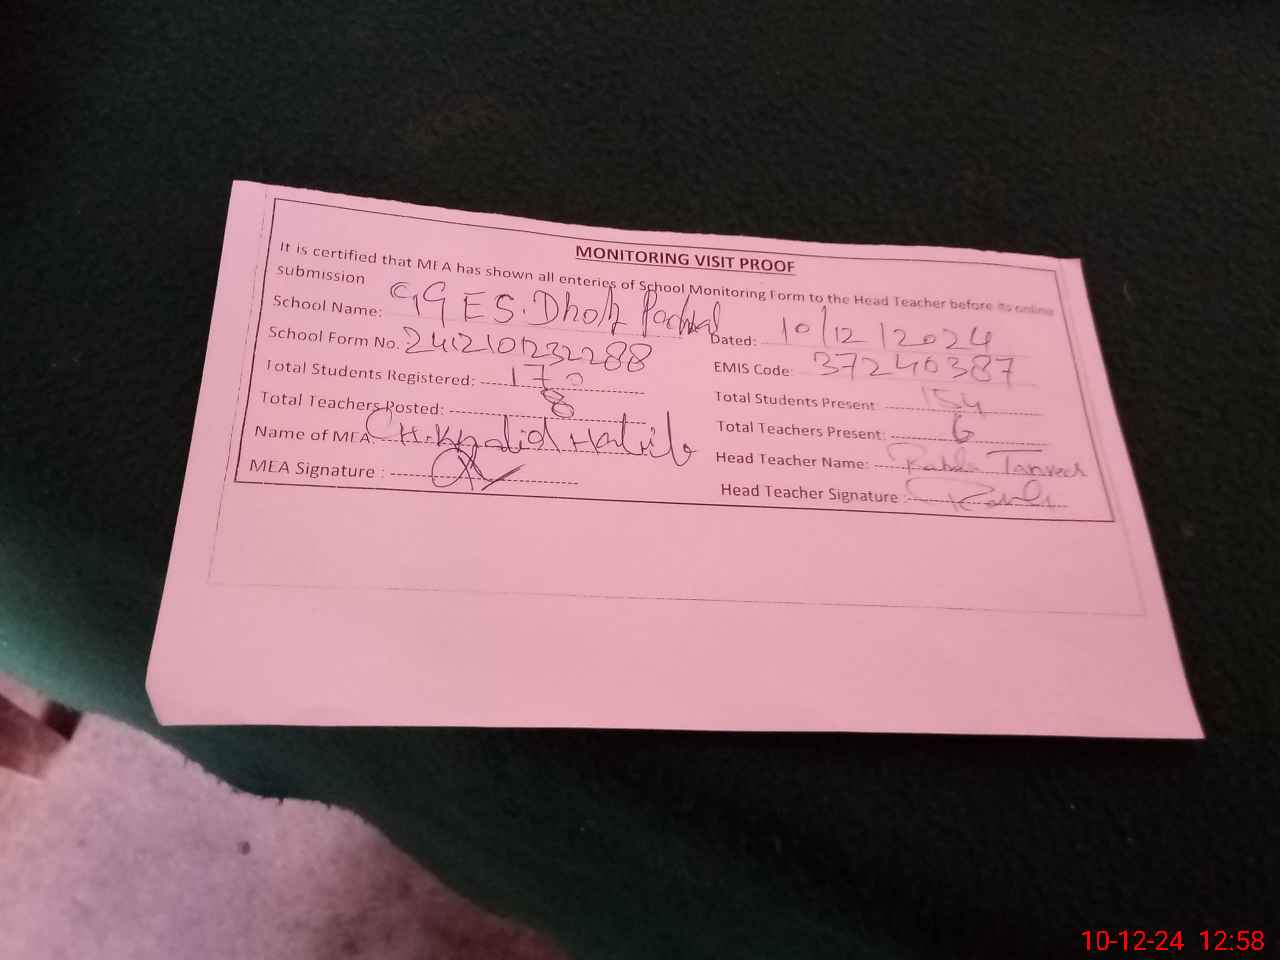 MONITORING VISIT PROOF
It is certified that MEA has shown all enteries of School Monitoring Form to the Head Teacher before its online
submission
School Name: GGES. Dhok
Dated: 10/12/2024
School Form No. 2412101232288
EMIS Code: 37240387
Total Students Registered: 170
Total Students Present: 154
Total Teachers Posted: 8
Total Teachers Present: 6
Name of MEA: CH. Khalid
Head Teacher Name: Tanveer
MEA Signature :
Head Teacher Signature :
10-12-24 12:58